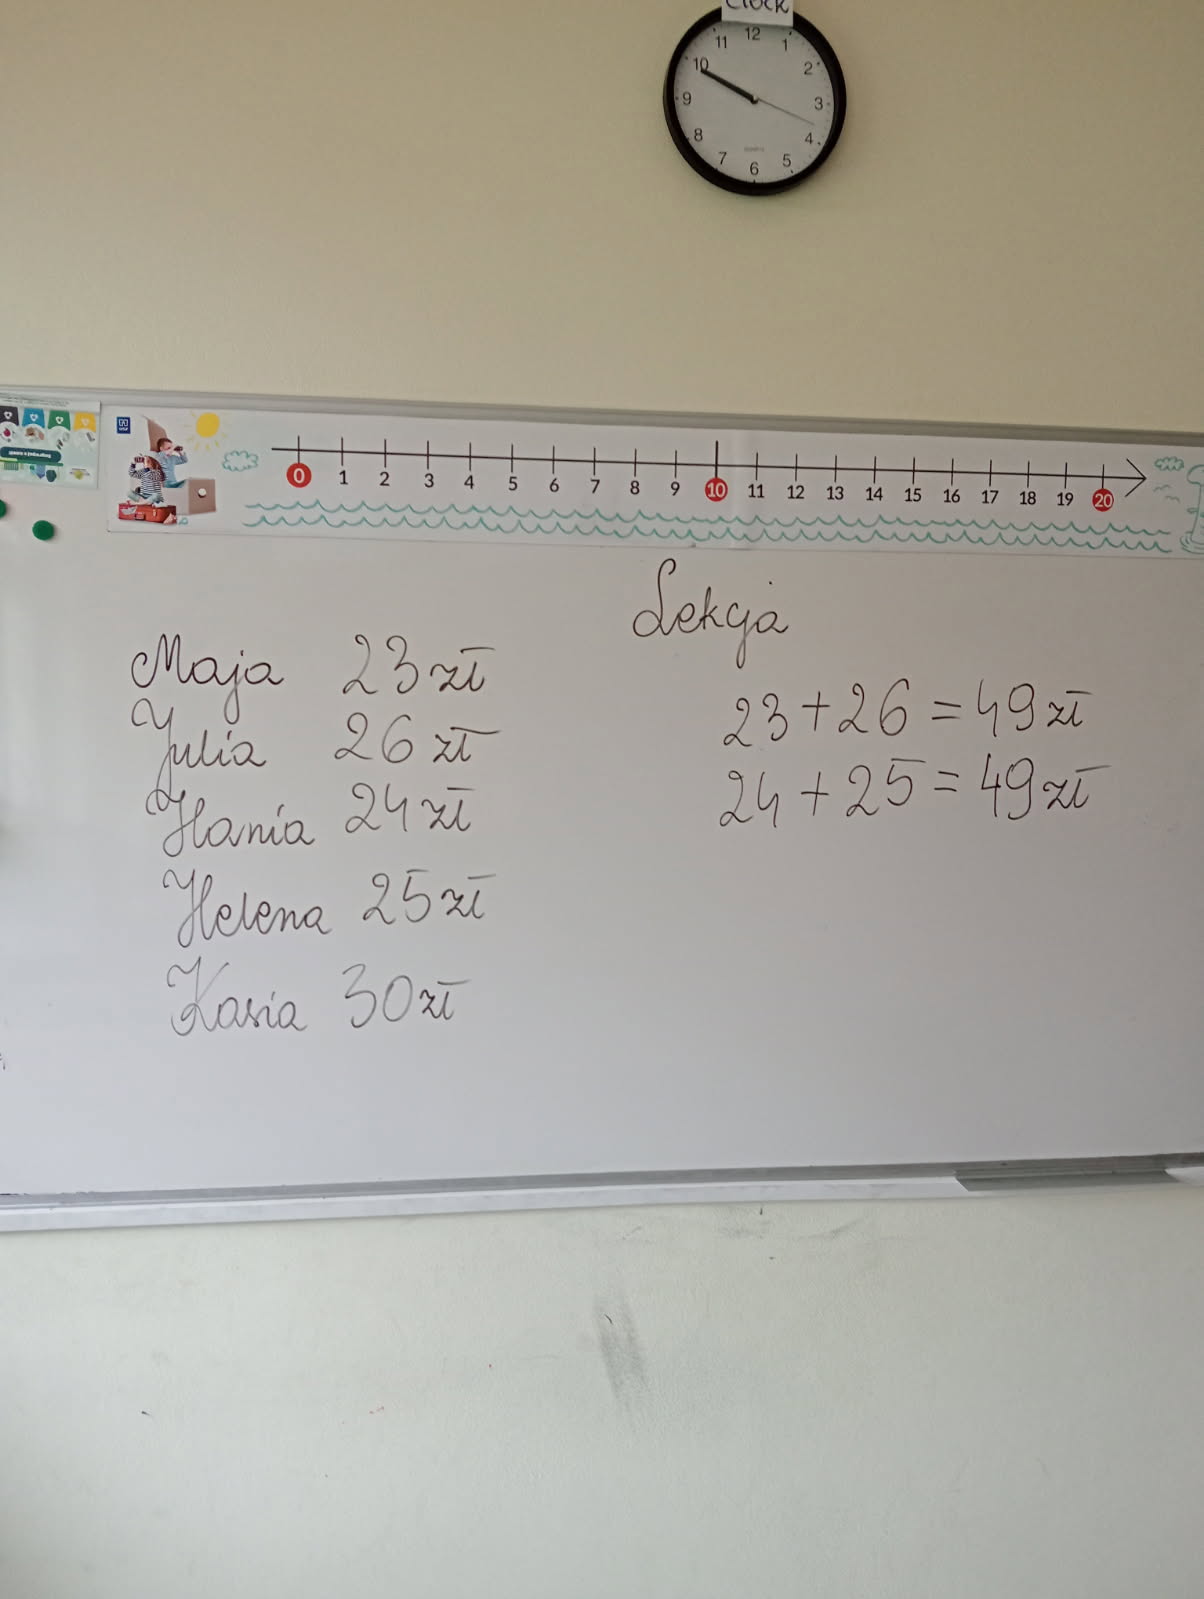 Clock
12
11 1
10 2
9 3
8 4
7 5
6
0 1 2 3 4 5 6 7 8 9 10 11 12 13 14 15 16 17 18 19 20
Lekcja
Maja 23 zł
Julia 26 zł
Hania 24 zł
Helena 25 zł
Kasia 30 zł
23 + 26 = 49 zł
24 + 25 = 49 zł